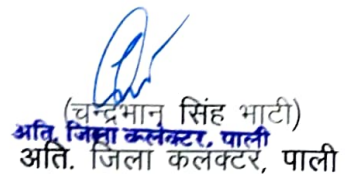 (चन्द्रभान सिंह भाटी)
अति. जिला कलेक्टर, पाली
अति. जिला कलेक्टर, पाली